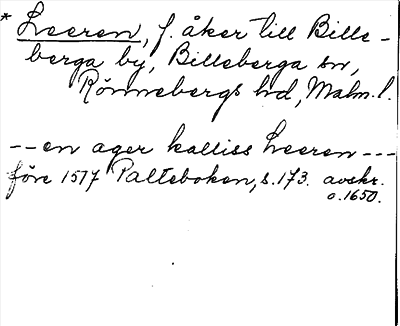 * Leeren, f. åker till Bille-
berga by, Billeberga sn,
Rönnebergs hd, Malm. l.
-- en ager kalliss Leeren ---
före 1577 Palteboken, s. 173. avskr.
o. 1650.